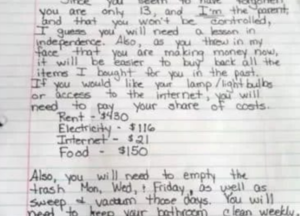 Since you seem to have forgotten
you are only 13, and I'm the parent,
and that you won't be controlled,
I guess you will need a lesson in
independence. Also, as you threw in my
face that you are making money now,
it will be easier to buy back all the
items I bought for you in the past.
If you would like your lamp/lightbulbs
or access to the internet, you will
need to pay your share of costs.
Rent - $430
Electricity - $116
Internet - $21
Food - $150
Also, you will need to empty the
trash Mon, Wed, & Friday, as well as
sweep & vacuum those days. You will
need to keep your bathroom clean weekly